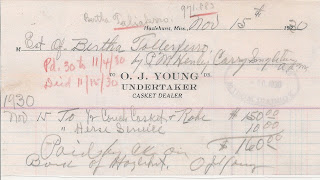 971.883
Bertha Taliaferro
Hazlehurst, Miss. Nov 15th 1930
Est Of Bertha Tolleferro
by P. M. Henley, Carry
Pd. 30th 11/4/30
Paid 11/15/30
TO O. J. YOUNG DR.
UNDERTAKER
CASKET DEALER
1930
Nov 15 To Gr Couch Casket & Robe $ 150.00
" Herse Service 10.00
$ 160.00
Paid by
Bank of Hazlehurst O J Young